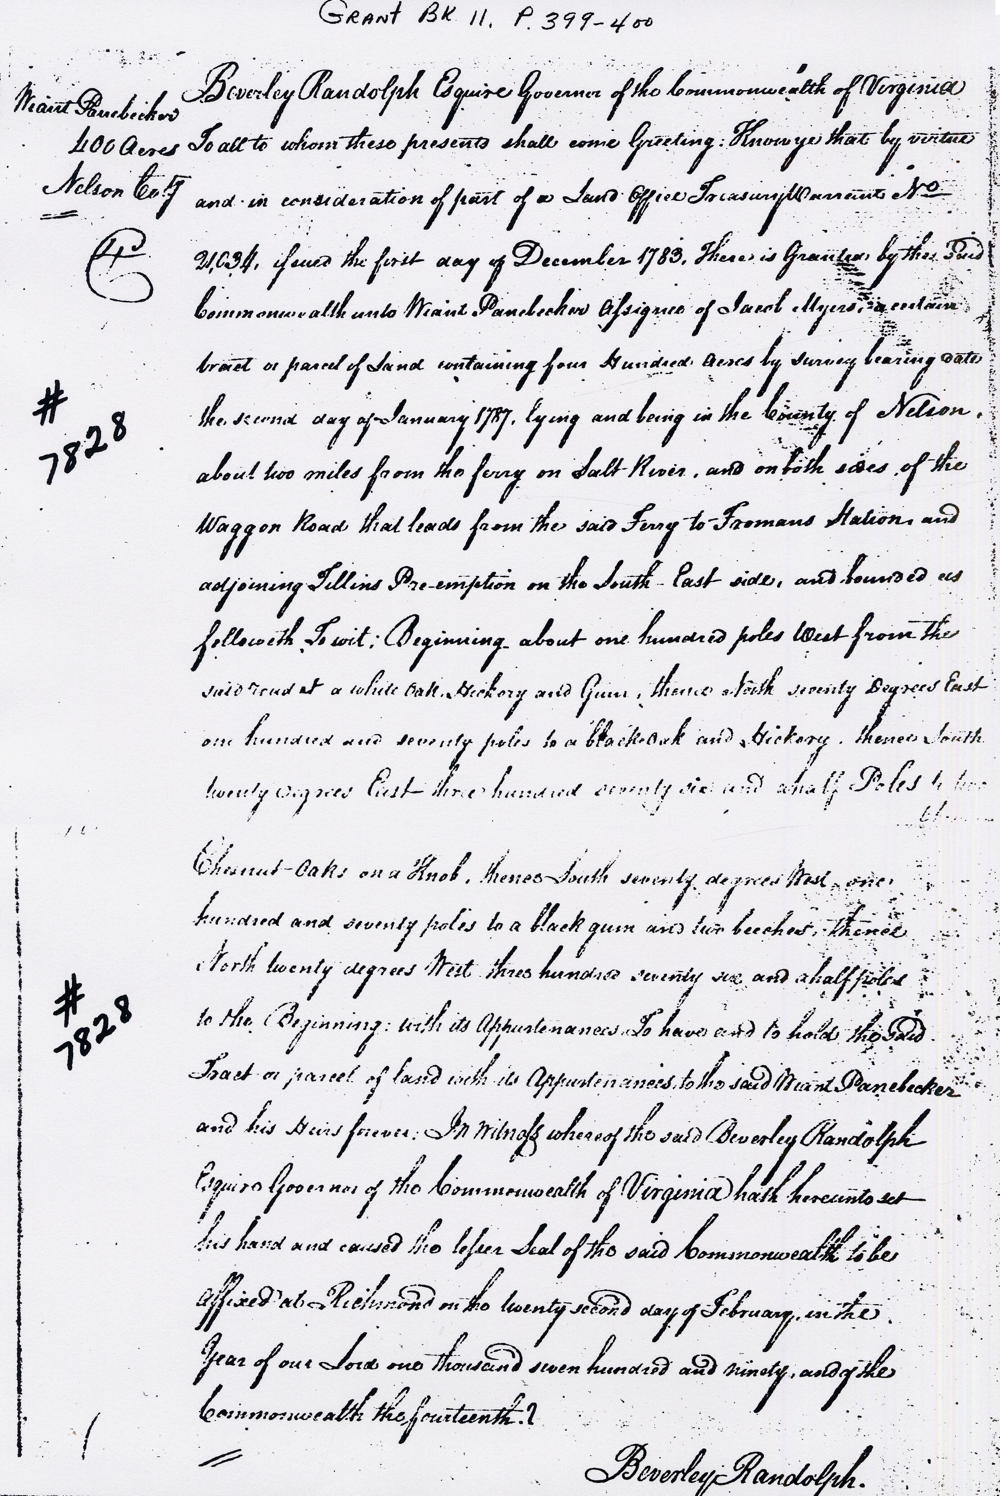 GRANT BK 11. P. 399-400
Wiant Panebecker
400 Acres
Nelson Co'ty
#
7828
Beverley Randolph Esquire Governor of the Commonwealth of Virginia
To all to whom these presents shall come Greeting: Know ye that by virtue
and in consideration of part of a Land Office Treasury Warrant No
issued the first day of December 1783, There is Granted by the said
Commonwealth unto Wiant Panebecker Assignee of Jacob Myers, a certain
tract or parcel of Land containing four Hundred Acres by survey bearing date
the second day of January 1787, lying and being in the County of Nelson,
about two miles from the ferry on Salt River, and on both sides of the
Waggon Road that leads from the said Ferry to Fromans Station and
adjoining Tillins Pre-emption on the South-East side, and bounded as
followeth, To wit: Beginning about one hundred poles West from the
said road at a white oak, Hickory and Gum, thence North seventy Degrees East
one hundred and seventy poles to a black oak and Hickory, thence South
twenty degrees East three hundred seventy six and a half Poles to two
Chesnut-Oaks on a Knob, thence South seventy degrees West, one
hundred and seventy poles to a black gum and two beeches, thence
North twenty degrees West three hundred seventy six and a half poles
to the Beginning: with its Appurtenances. To have and to hold the said
Tract or parcel of land with its Appurtenances, to the said Wiant Panebecker
and his Heirs forever: In Witness whereof the said Beverley Randolph
Esquire Governor of the Commonwealth of Virginia hath hereunto set
his hand and caused the lesser Seal of the said Commonwealth to be
affixed at Richmond on the twenty second day of February, in the
Year of our Lord one thousand seven hundred and ninety, and of the
Commonwealth the fourteenth.
#
7828
Beverley Randolph.